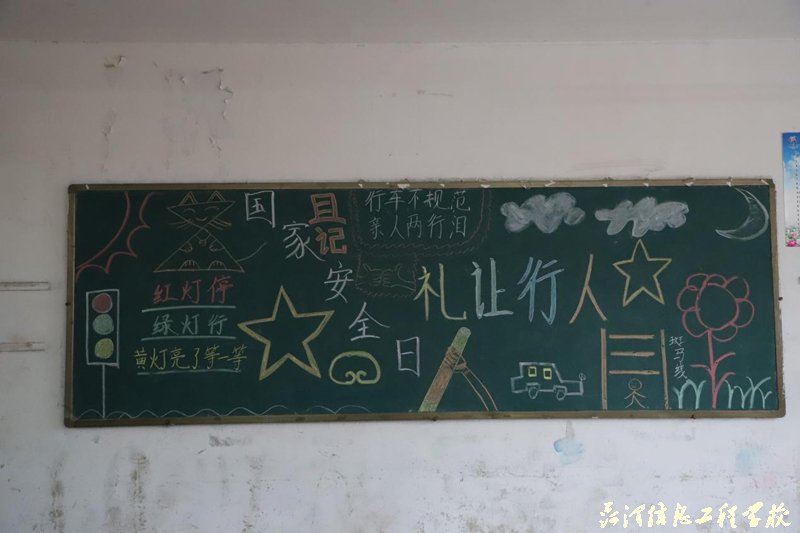 国家安全日
且记
行车不规范
亲人两行泪
红灯停
绿灯行
黄灯亮了等一等
礼让行人
斑马线
信息工程学校